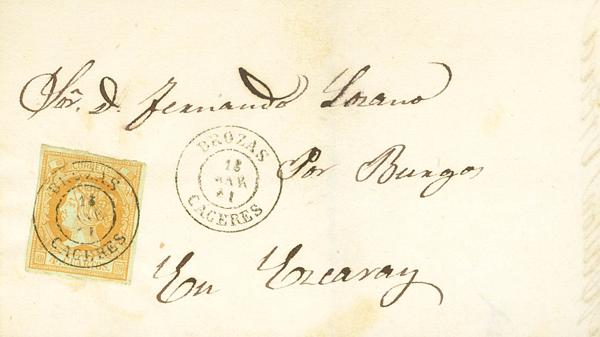 Sor. D. Fernando Lozano
Por Burgos
En Ezcaray
BROZAS
13
MAR
61
CACERES
BROZAS
13
CACERES